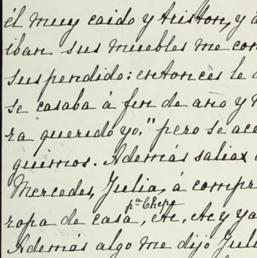 él muy caido y tristón, y á
iban sus muebles me con
suspendido: entonces le d
se casaba á fin de año y n
ra querido yo," pero se ace
quimos. Además salias
Mercedes, Julia, á compr
pa Chepa
ropa de casa, etc, Ac y ya
Además algo me dijo Juli